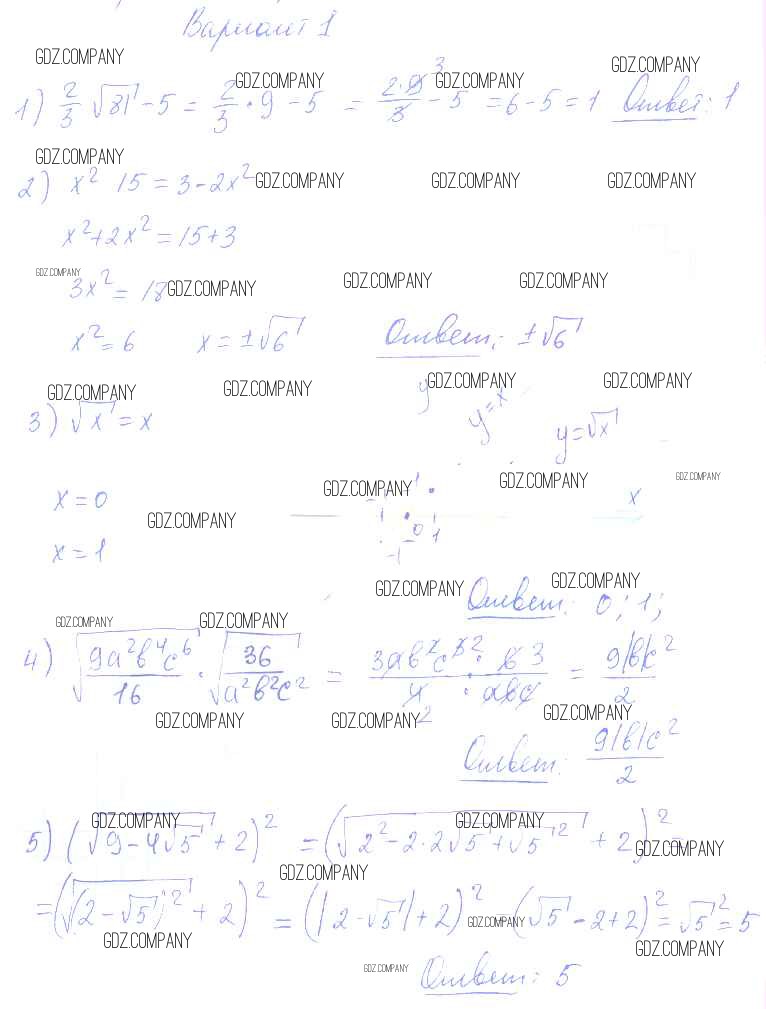 Вариант 1
GDZ.COMPANY
GDZ.COMPANY GDZ.COMPANY GDZ.COMPANY
1) 2/3 √81 - 5 = 2/3 · 9 - 5 = 2·9³/3 - 5 = 6 - 5 = 1 Ответ: 1
GDZ.COMPANY
2) x² 15 = 3 - 2x² GDZ.COMPANY GDZ.COMPANY GDZ.COMPANY
x² + 2x² = 15 + 3
GDZ.COMPANY
3x² = 18 GDZ.COMPANY GDZ.COMPANY GDZ.COMPANY
x² = 6 x = ±√6 Ответ: ±√6
GDZ.COMPANY GDZ.COMPANY y GDZ.COMPANY GDZ.COMPANY
3) √x = x y = x y = √x
x = 0 GDZ.COMPANY 1 GDZ.COMPANY GDZ.COMPANY
GDZ.COMPANY -1 0 1 x
x = 1 -1
GDZ.COMPANY GDZ.COMPANY
Ответ: 0; 1;
GDZ.COMPANY GDZ.COMPANY
4) √(9a²b⁴c⁶/16) · √(36/a²b²c²) = 3ab²c³² · 6 3/4 · abc = 9|b|c²/2
GDZ.COMPANY GDZ.COMPANY 2 GDZ.COMPANY
Ответ: 9|b|c²/2
GDZ.COMPANY GDZ.COMPANY
5) (√(9 - 4√5) + 2)² = (√(2² - 2·2√5 + √5²) + 2)² =
GDZ.COMPANY
GDZ.COMPANY
= (√((2 - √5)²) + 2)² = (|2 - √5| + 2)² GDZ.COMPANY (√5 - 2 + 2)² = √5² = 5
GDZ.COMPANY GDZ.COMPANY
GDZ.COMPANY Ответ: 5